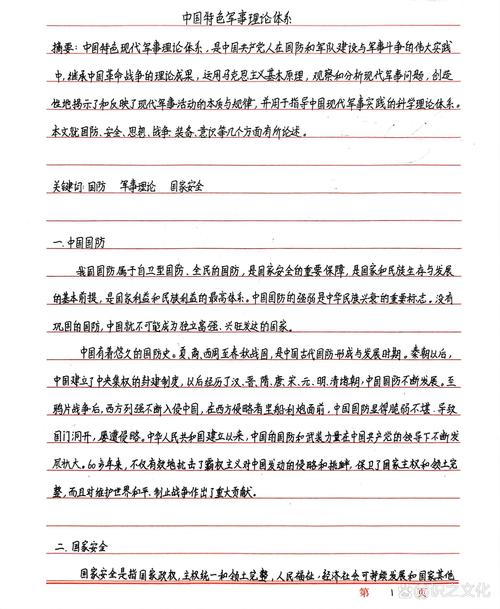 中国特色军事理论体系
摘要：中国特色现代军事理论体系，是中国共产党人在国防和军队建设与军事斗争的伟大实践
中，继承中国革命战争的理论成果，运用马克思主义基本原理，观察和分析现代军事问题，创造
性地揭示了和反映了现代军事活动的本质与规律，并用于指导中国现代军事实践的科学理论体系。
本文就国防、安全、思想、战争、装备、意识等几个方面有所论述。
关键词：国防 军事理论 国家安全
一、中国国防
我国国防属于自卫型国防、全民的国防，是国家安全的重要保障，是国家和民族生存与发展
的基本前提，是国家利益和民族利益的最高体系。中国国防的强弱是中华民族兴衰的重要标志。没有
巩固的国防，中国就不可能成为独立富强、兴旺发达的国家。
中国有着悠久的国防史。夏、商、西周至春秋战国，是中国古代国防形成与发展时期。秦朝以后，
中国建立了中央集权的封建制度，以后经历了汉、晋、隋、唐、宋、元、明、清诸朝，中国国防不断发展。至
鸦片战争后，西方列强不断入侵中国，在西方侵略者坚船利炮面前，中国国防显得脆弱不堪、导致
国门洞开，屡遭侵略。中华人民共和国建立以来，中国的国防和武装力量在中国共产党的领导下不断发
展扩大。60多年来，不仅有效地抗击了霸权主义对中国发动的侵略和挑衅，保卫了国家主权和领土完
整，而且对维护世界和平、制止战争作出了重大贡献。
二、国家安全
国家安全是指国家政权、主权统一和领土完整、人民福祉、经济社会可持续发展和国家其他
第 1 页